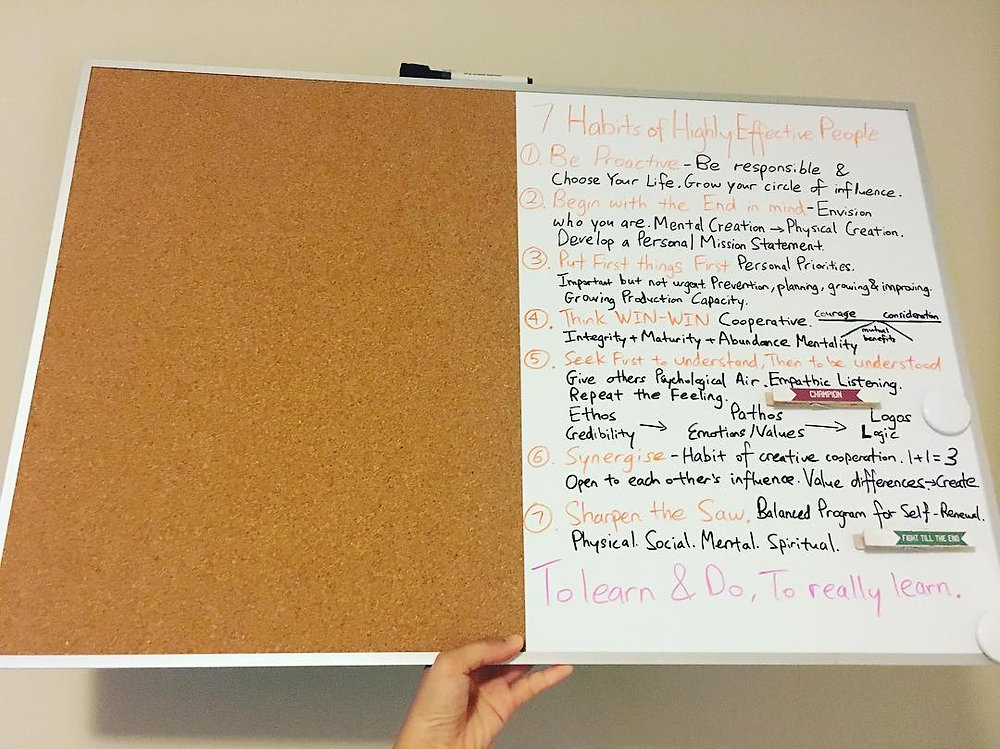 7 Habits of Highly Effective People
①. Be Proactive - Be responsible &
Choose Your Life. Grow your circle of influence.
②. Begin with the End in mind - Envision
who you are. Mental Creation → Physical Creation.
Develop a Personal Mission Statement.
③. Put First things First Personal Priorities.
Important but not urgent Prevention, planning, growing & improving.
Growing Production Capacity.
④. Think WIN-WIN Cooperative. Courage consideration
Integrity + Maturity + Abundance Mentality mutual
benefits
⑤. Seek First to understand, Then to be understood
Give others Psychological Air. Empathic Listening.
Repeat the Feeling. CHAMPION
Ethos Pathos Logos
Credibility → Emotions/Values → Logic
⑥. Synergise - Habit of creative cooperation. 1+1=3
Open to each other's influence. Value differences → Create
⑦. Sharpen the Saw. Balanced Program for Self-Renewal.
Physical. Social. Mental. Spiritual. FIGHT TILL THE END
To learn & Do, To really learn.